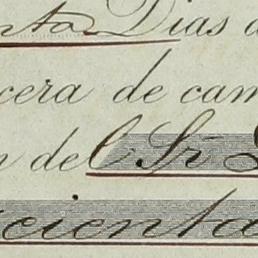 nta Dias d
cera de cam
n del Sr.
cienta